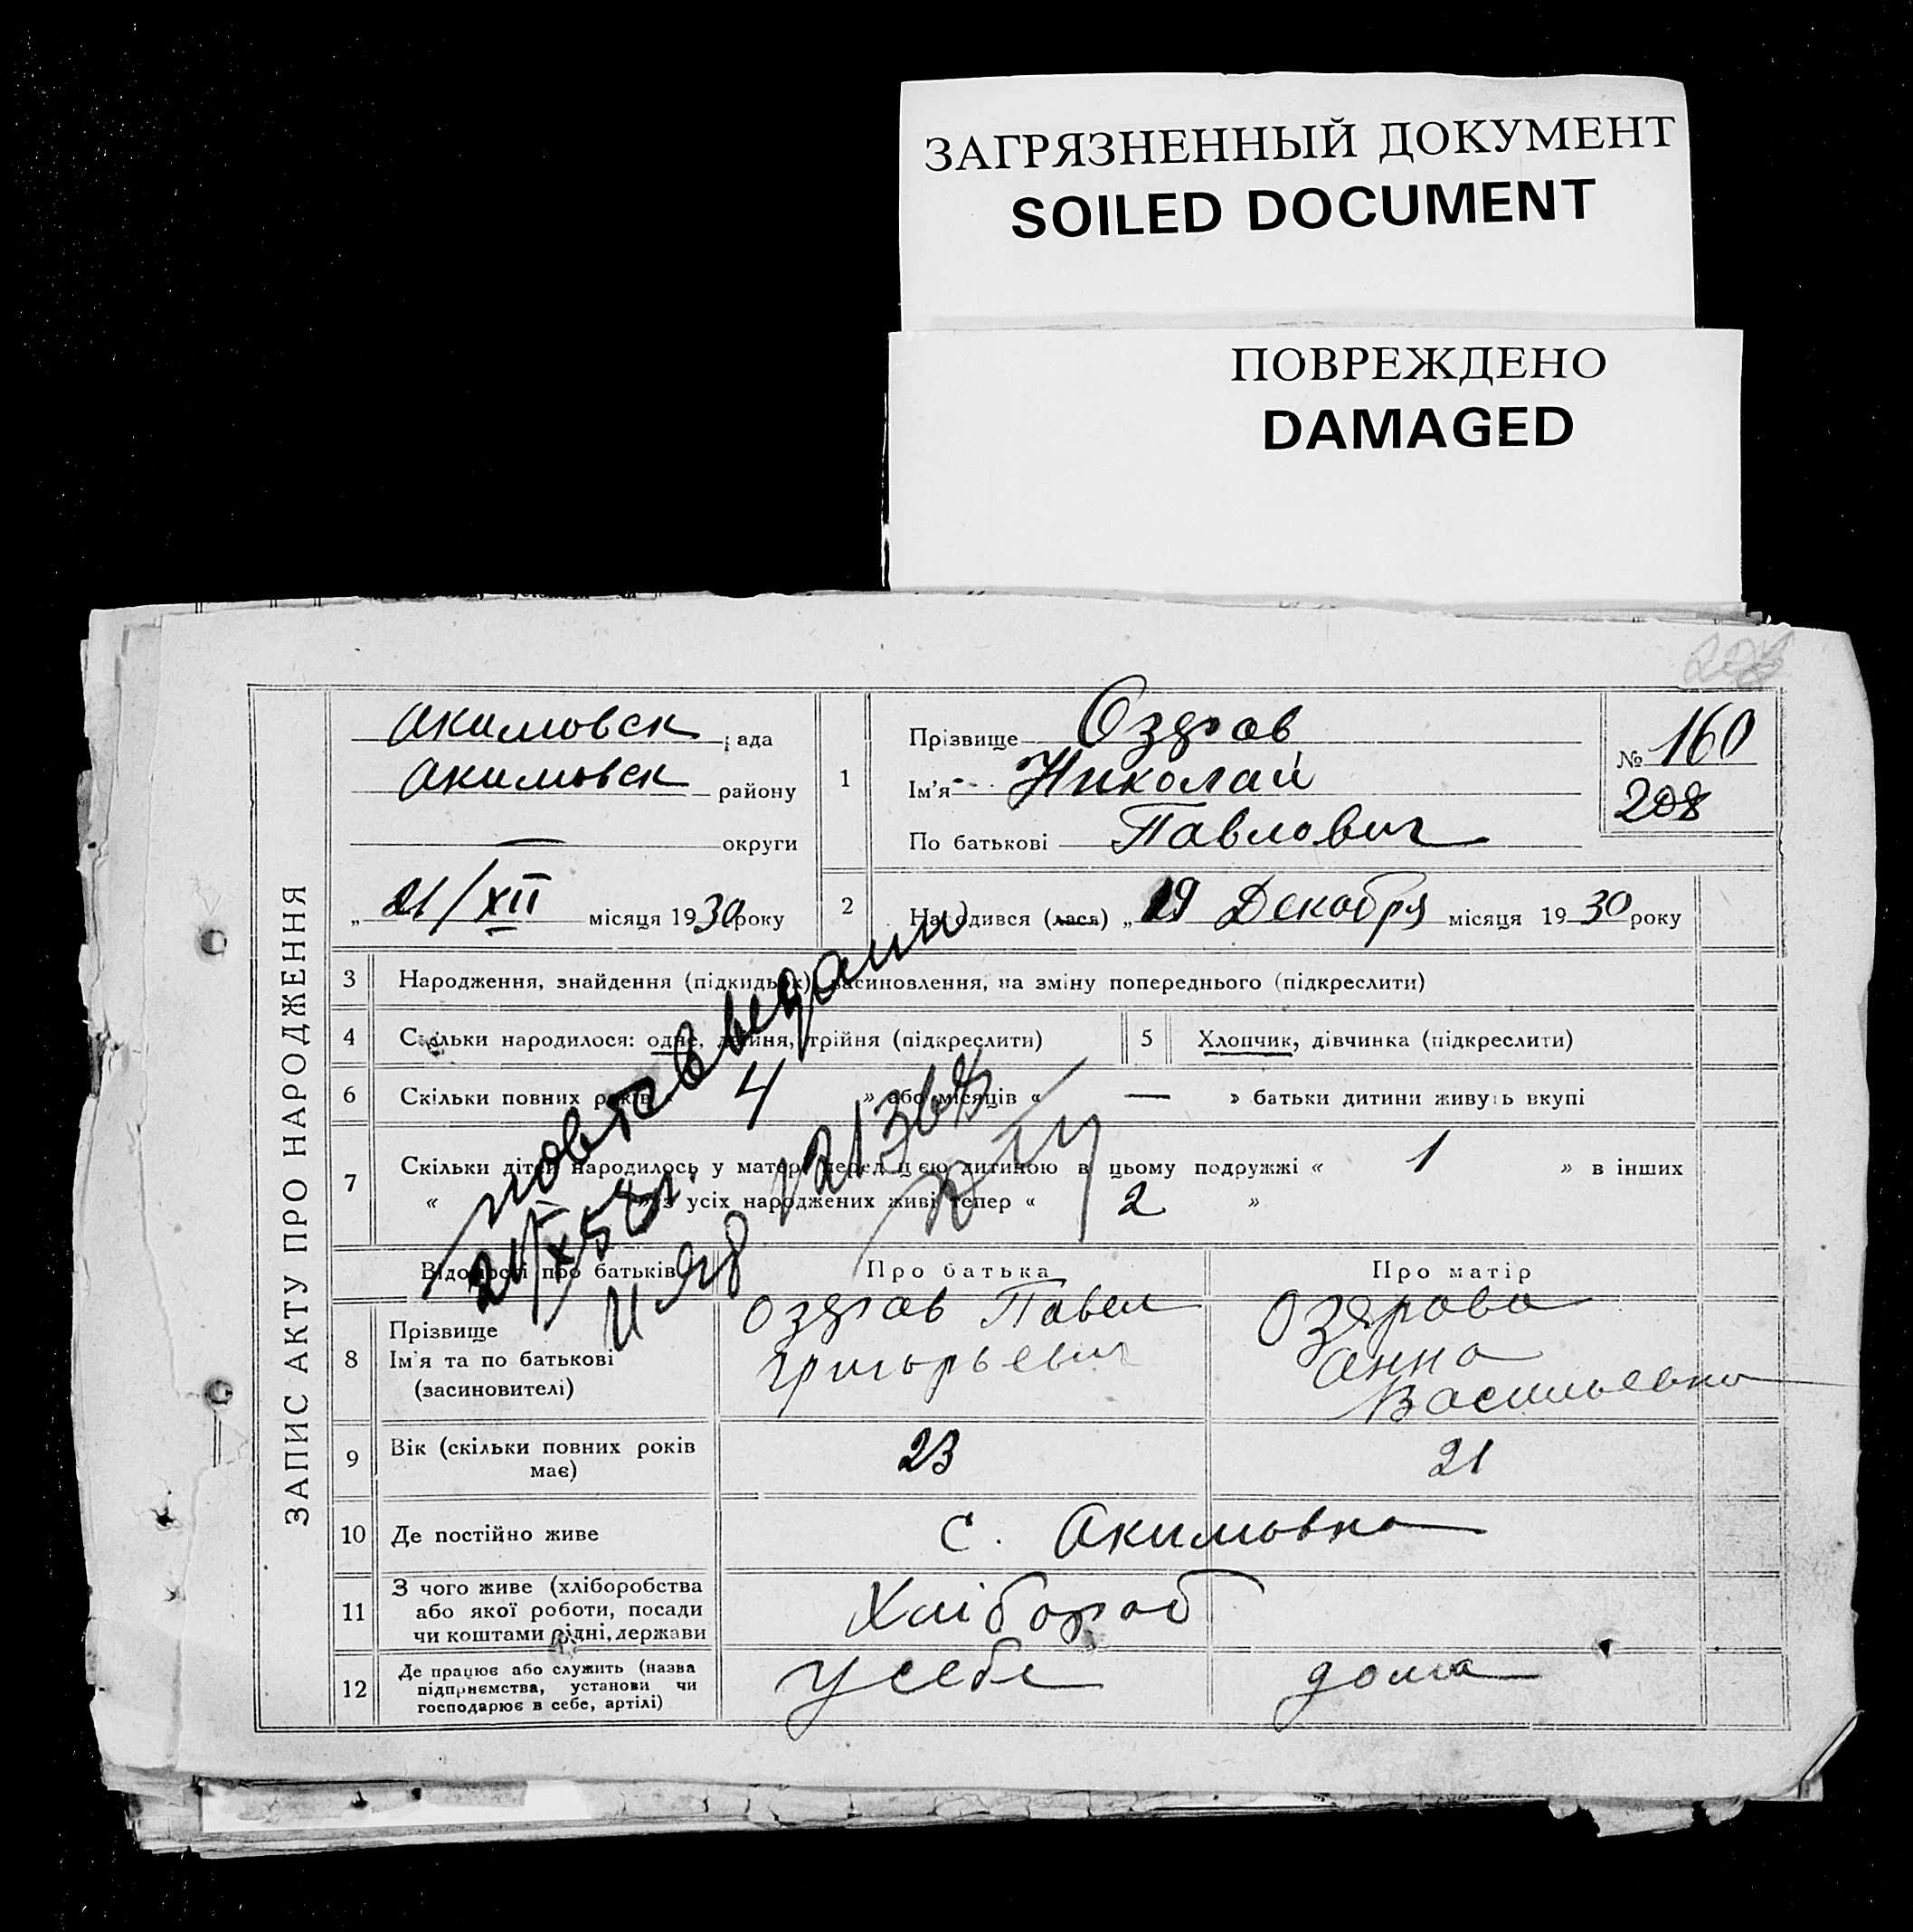 ЗАГРЯЗНЕННЫЙ ДОКУМЕНТ
SOILED DOCUMENT
ПОВРЕЖДЕНО
DAMAGED
208
ЗАПИС АКТУ ПРО НАРОДЖЕННЯ
Акимовск рада
Акимовск району
— округи
„ 21/XII місяця 1930 року
1
Прізвище
Ім'я Николай
По батькові Павлович
№ 160
208
2 Народився (лася) „ 19 Декабря місяця 1930 року
3 Народження, знайдення (підкидьок), засиновлення, на зміну попереднього (підкреслити)
4 Скільки народилося: одне, двійня, трійня (підкреслити)
5 Хлопчик, дівчинка (підкреслити)
6 Скільки повних років 4 » або місяців « — » батьки дитини живуть вкупі
7 Скільки дітей народилось у матері перед цією дитиною в цьому подружжі « 1 » в інших
« » з усіх народжених живі тепер « 2 »
21/X 58 г.
Відомості про батьків Про батька Про матір
8 Прізвище
Ім'я та по батькові
(засиновителі)
Павел
Григорьевич
Анна
Васильевна
9 Вік (скільки повних років
має)
23 21
10 Де постійно живе с. Акимовка
11 З чого живе (хліборобства
або якої роботи, посади
чи коштами рідні, держави
Хлібороб
12 Де працює або служить (назва
підприємства, установи чи
господарює в себе, артілі)
у себе дома